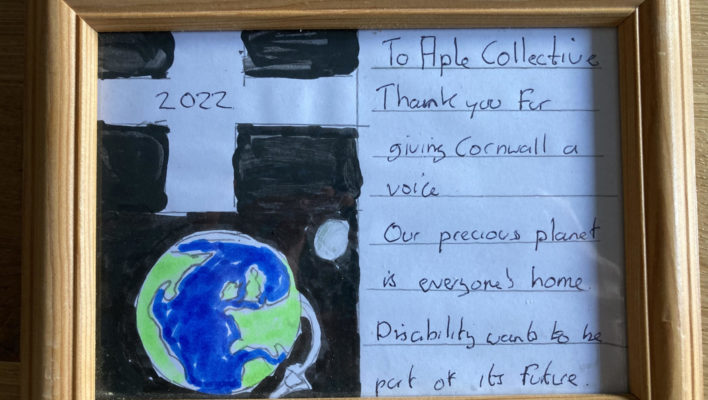 2022
To Aple Collective
Thank you For
giving Cornwall a
voice
Our precious planet
is everyone's home.
Disability wants to be
part of its future.